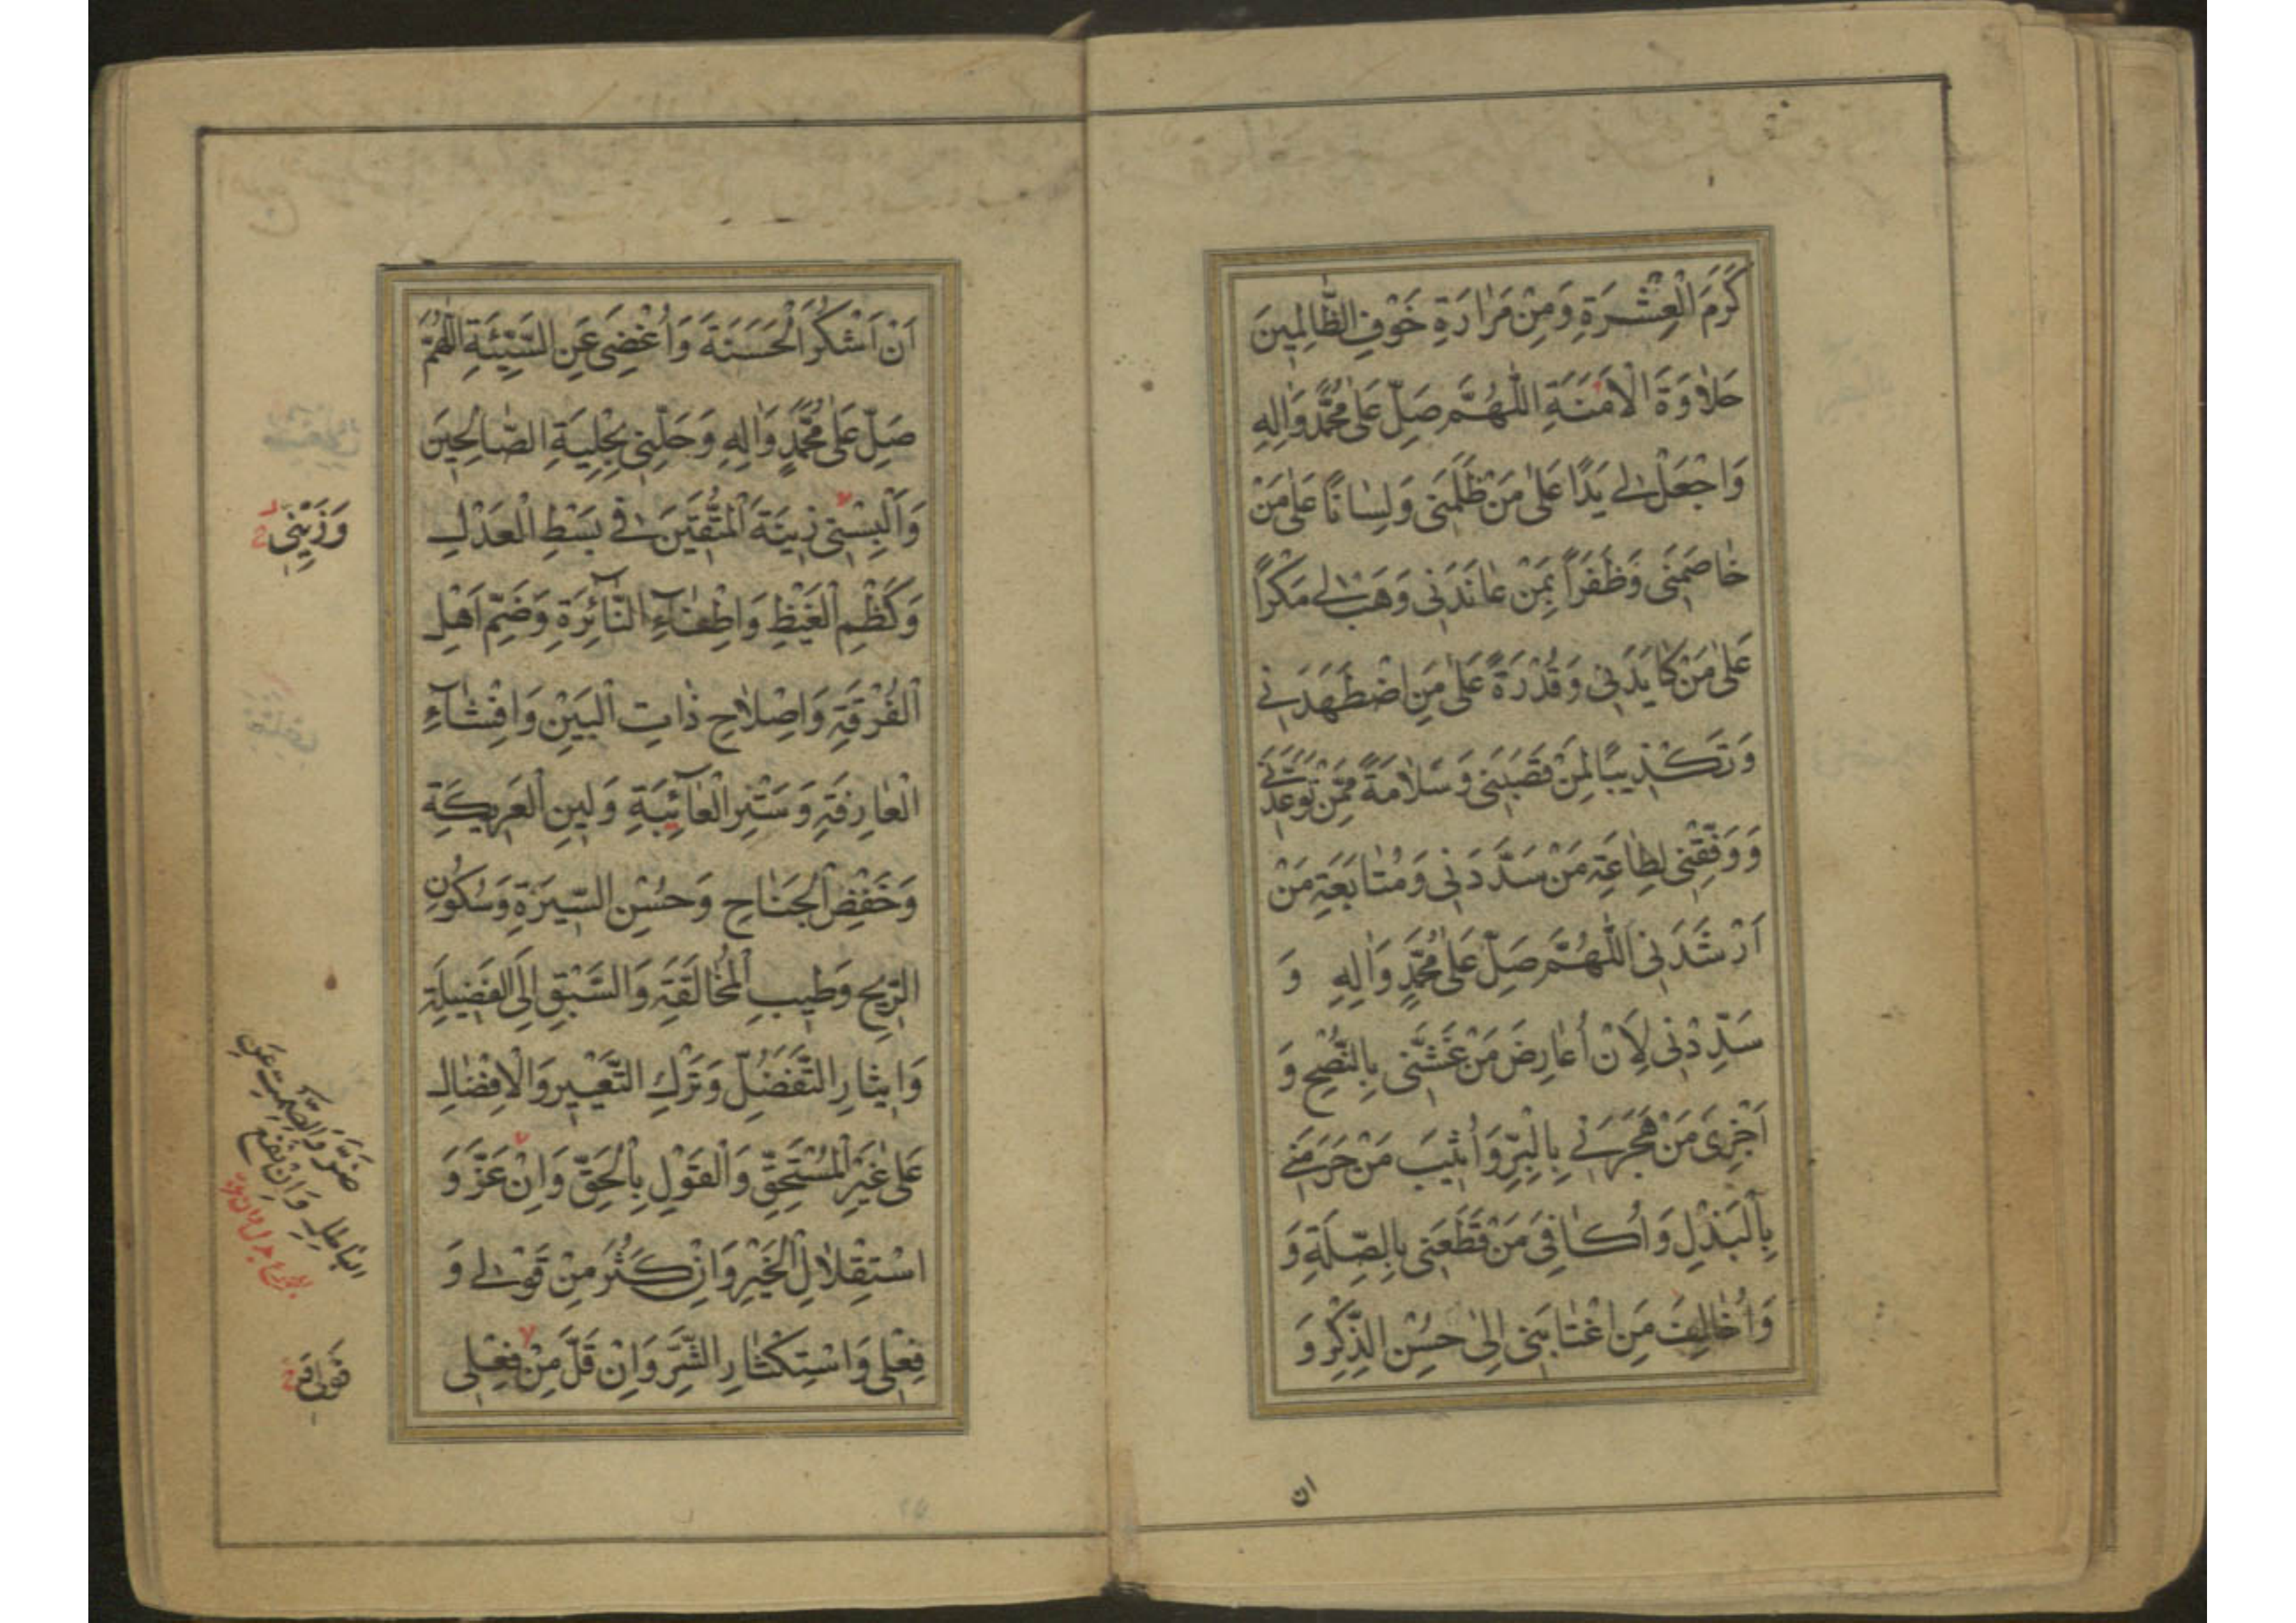 كَرَمَ الْعِشْرَةِ وَمِنْ مَرٰارَةِ خَوْفِ الظّٰالِمِينَ
حَلٰاوَةَ الْاَمَنَةِ اللّٰهُمَّ صَلِّ عَلٰى مُحَمَّدٍ وَاٰلِهِ
وَاجْعَلْ لِي يَدًا عَلٰى مَنْ ظَلَمَنِى وَلِسٰانًا عَلٰى مَنْ
خٰاصَمَنِى وَظَفَرًا بِمَنْ عٰانَدَنِى وَهَبْ لِي مَكْرًا
عَلٰى مَنْ كٰايَدَنِى وَقُدْرَةً عَلٰى مَنِ اضْطَهَدَنِي
وَتَكْذِيبًا لِمَنْ قَصَبَنِى وَسَلٰامَةً مِمَّنْ تَوَعَّدَنِي
وَوَفِّقْنِى لِطٰاعَةِ مَنْ سَدَّدَنِى وَمُتٰابَعَةِ مَنْ
اَرْشَدَنِى اَللّٰهُمَّ صَلِّ عَلٰى مُحَمَّدٍ وَاٰلِهِ وَ
سَدِّدْنِى لِاَنْ اُعٰارِضَ مَنْ غَشَّنِى بِالنُّصْحِ وَ
اَجْزِىَ مَنْ هَجَرَنِي بِالْبِرِّ وَاُثِيبَ مَنْ حَرَمَنِي
بِالْبَذْلِ وَاُكٰافِىَ مَنْ قَطَعَنِى بِالصِّلَةِ وَ
وَاُخٰالِفَ مَنِ اغْتٰابَنِى اِلٰى حُسْنِ الذِّكْرِ وَ
ان
اَنْ اَشْكُرَ الْحَسَنَةَ وَاُغْضِىَ عَنِ السَّيِّئَةِ اَللّٰهُمَّ
صَلِّ عَلٰى مُحَمَّدٍ وَاٰلِهِ وَحَلِّنِى بِحِلْيَةِ الصّٰالِحِينَ
وَاَلْبِسْنِى زِينَةَ الْمُتَّقِينَ فِي بَسْطِ الْعَدْلِ
وَكَظْمِ الْغَيْظِ وَاِطْفٰآءِ النّٰآئِرَةِ وَضَمِّ اَهْلِ
الْفُرْقَةِ وَاِصْلٰاحِ ذٰاتِ الْبَيْنِ وَاِفْشٰآءِ
الْعٰارِفَةِ وَسَتْرِ الْعٰآئِبَةِ وَلِينِ الْعَرِيكَةِ
وَخَفْضِ الْجَنٰاحِ وَحُسْنِ السِّيرَةِ وَسُكُونِ
الرِّيحِ وَطِيبِ الْمُخٰالَقَةِ وَالسَّبْقِ اِلَى الْفَضِيلَةِ
وَاِيثٰارِ التَّفَضُّلِ وَتَرْكِ التَّعْيِيرِ وَالْاِفْضٰالِ
عَلٰى غَيْرِ الْمُسْتَحِقِّ وَالْقَوْلِ بِالْحَقِّ وَاِنْ عَزَّ وَ
اسْتِقْلٰالِ الْخَيْرِ وَاِنْ كَثُرَ مِنْ قَوْلِي وَ
فِعْلِى وَاسْتِكْثٰارِ الشَّرِّ وَاِنْ قَلَّ مِنْ فِعْلِى
وَزَيِّنِّى
وَالصَّمْتِ عَنِ
الْبٰاطِلِ وَاِنْ نَفَعَ